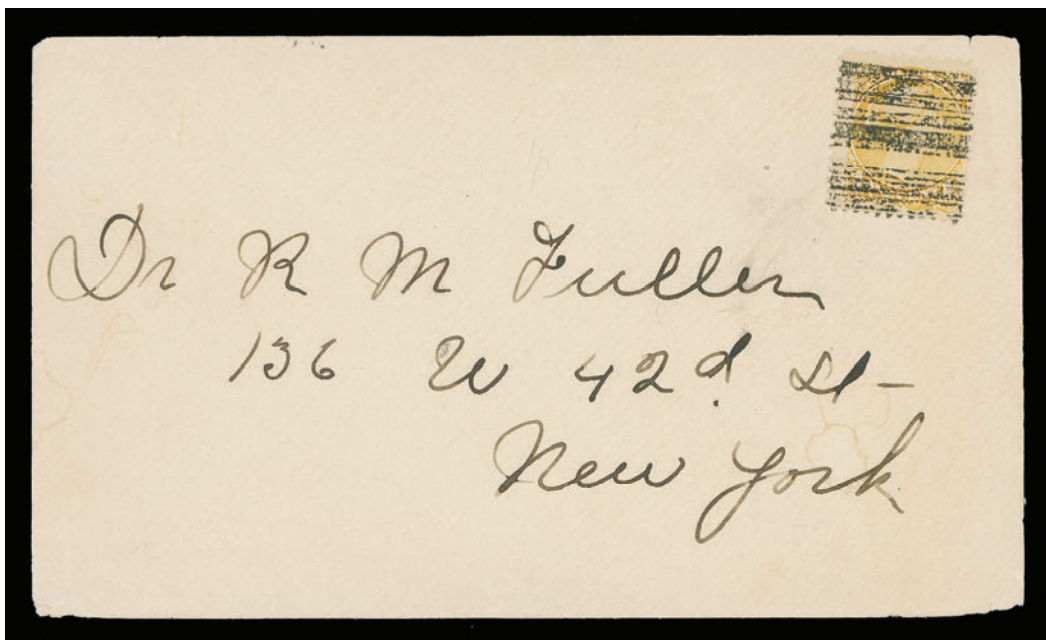 Dr R M Fuller
136 W 42d St-
New York